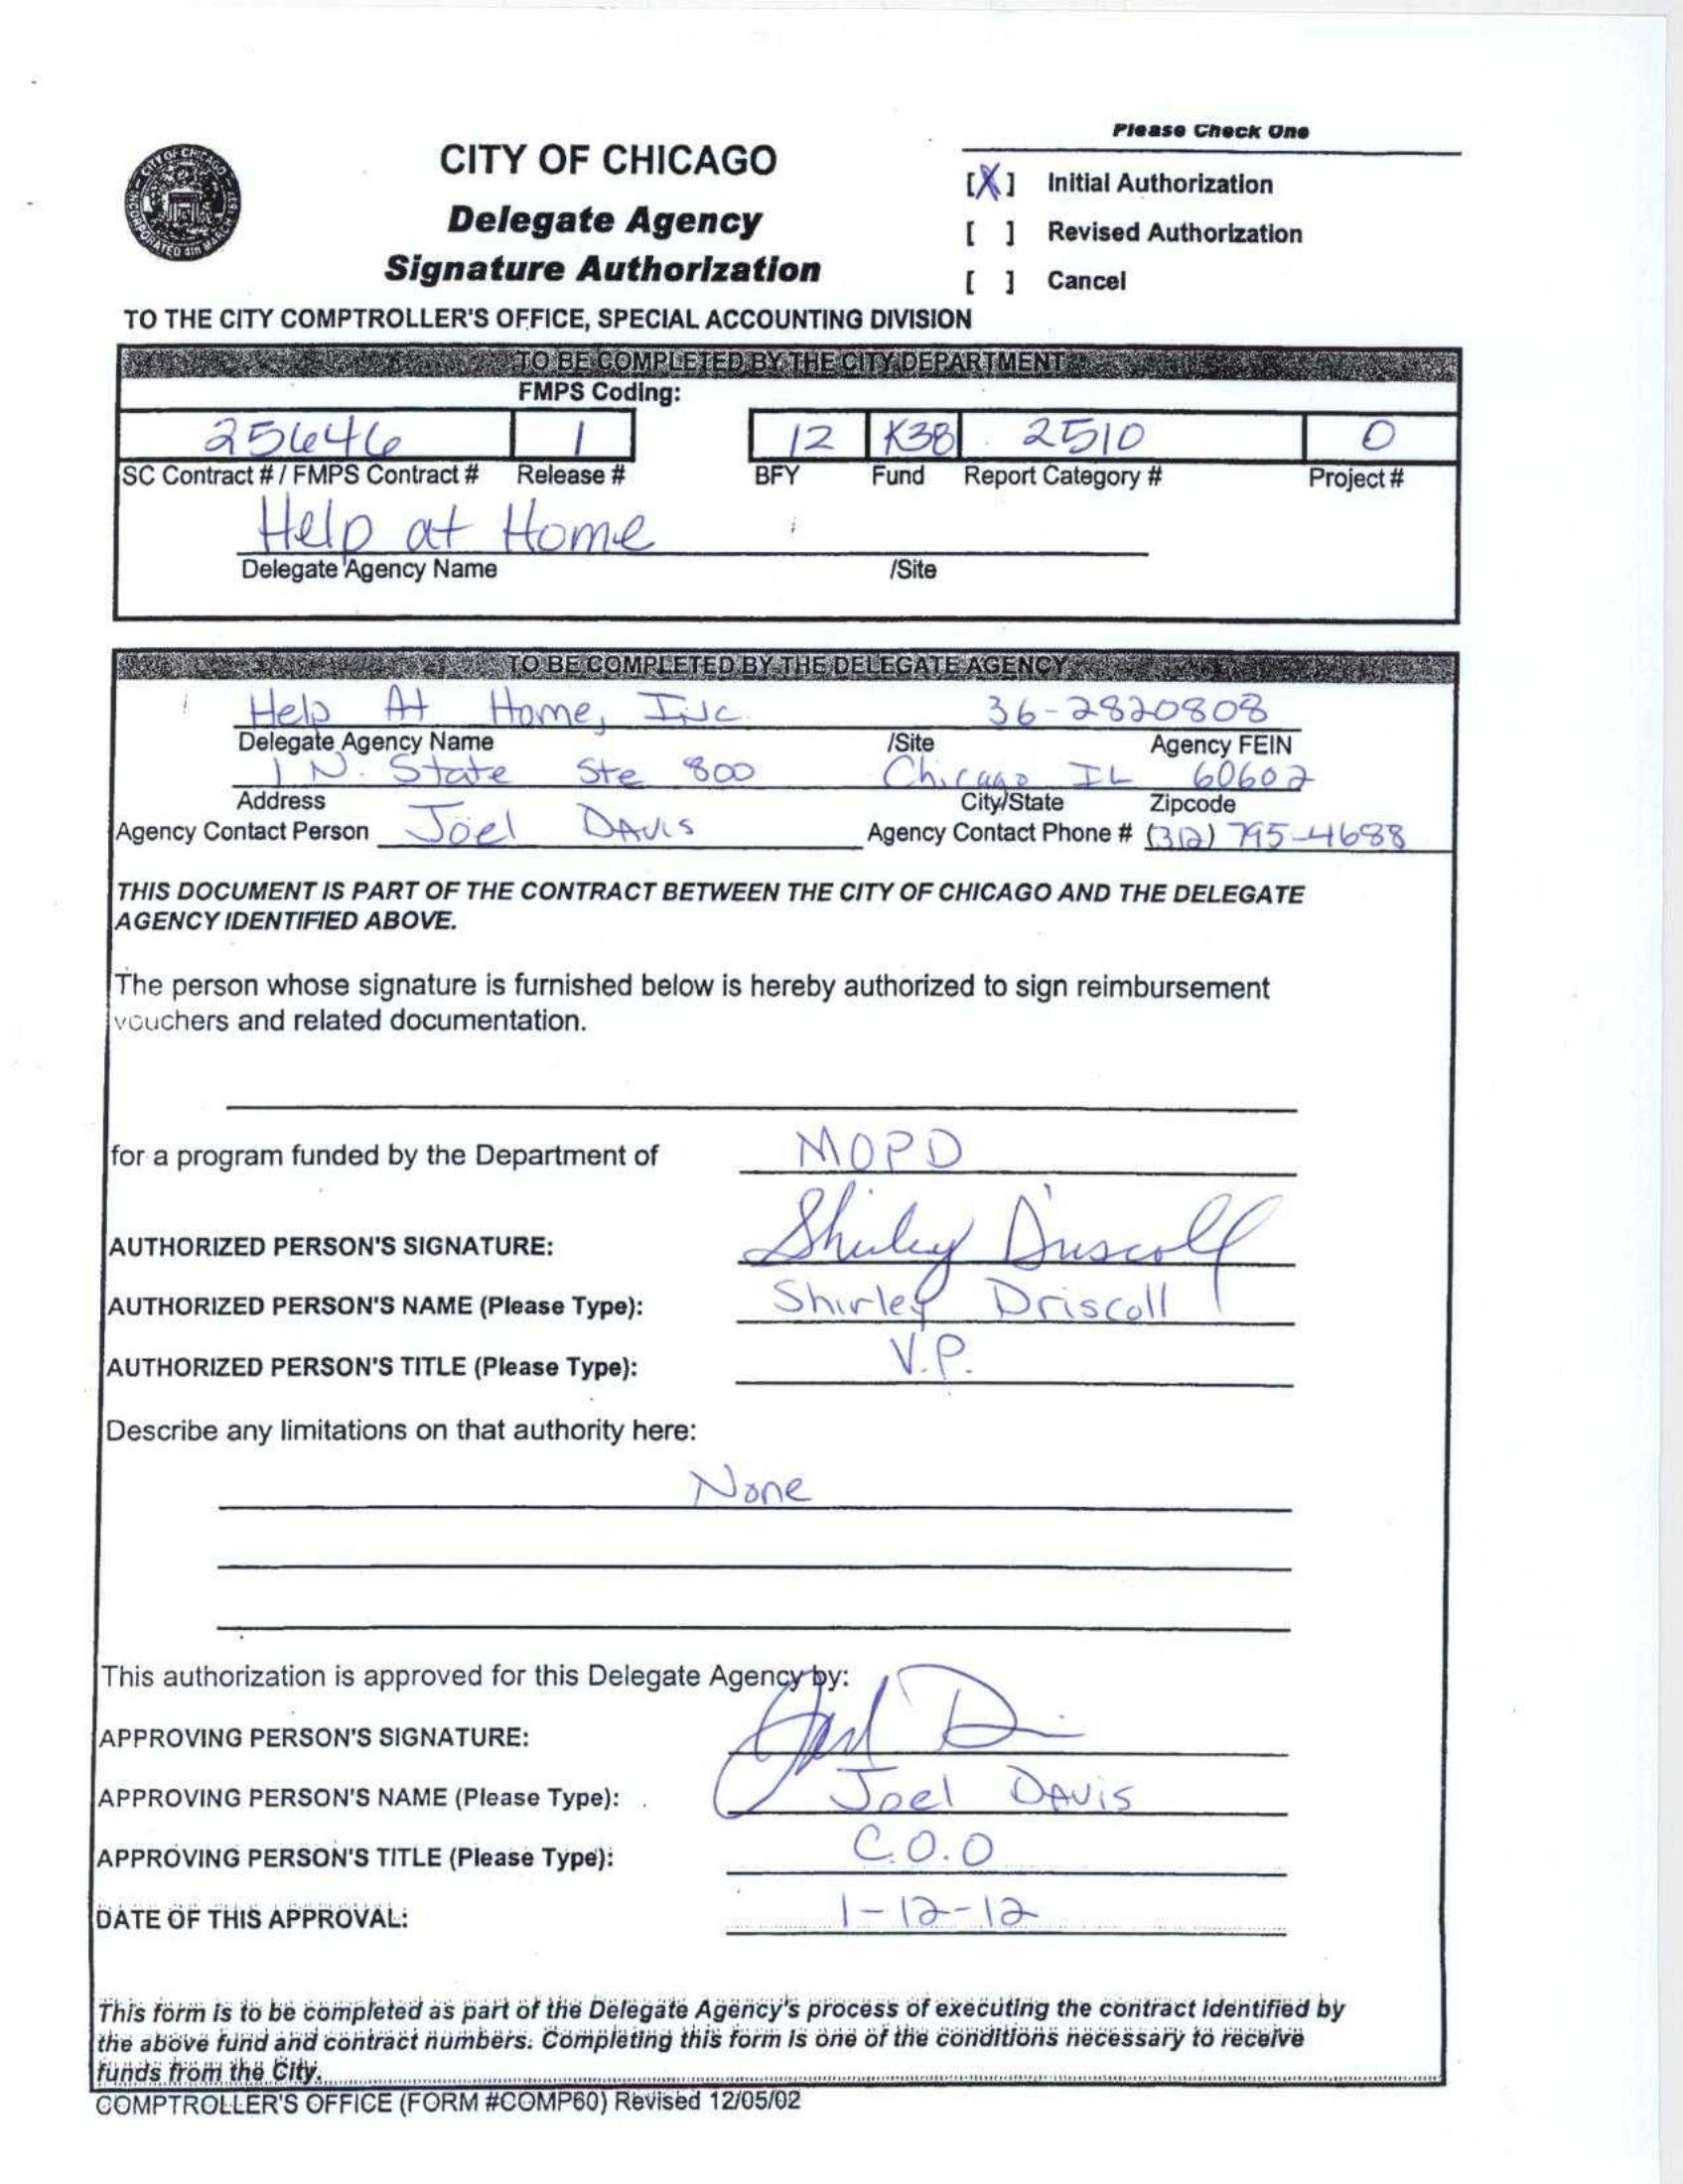 Please Check One
CITY OF CHICAGO
Delegate Agency
Signature Authorization
[X] Initial Authorization
[ ] Revised Authorization
[ ] Cancel
CITY OF CHICAGO INCORPORATED 4th MARCH 1837
TO THE CITY COMPTROLLER'S OFFICE, SPECIAL ACCOUNTING DIVISION
TO BE COMPLETED BY THE CITY DEPARTMENT
FMPS Coding:
25646 1 12 K38 2510 0
SC Contract # / FMPS Contract # Release # BFY Fund Report Category # Project #
Help at Home
Delegate Agency Name /Site
TO BE COMPLETED BY THE DELEGATE AGENCY
Help At Home, Inc. 36-2820808
Delegate Agency Name /Site Agency FEIN
1 N. State Ste 800 Chicago IL 60602
Address City/State Zipcode
Agency Contact Person Joel DAVIS Agency Contact Phone # (312) 795-4688
THIS DOCUMENT IS PART OF THE CONTRACT BETWEEN THE CITY OF CHICAGO AND THE DELEGATE
AGENCY IDENTIFIED ABOVE.
The person whose signature is furnished below is hereby authorized to sign reimbursement
vouchers and related documentation.
for a program funded by the Department of MOPD
AUTHORIZED PERSON'S SIGNATURE: Shirley Driscoll
AUTHORIZED PERSON'S NAME (Please Type): Shirley Driscoll
AUTHORIZED PERSON'S TITLE (Please Type): V.P.
Describe any limitations on that authority here:
None
This authorization is approved for this Delegate Agency by:
APPROVING PERSON'S SIGNATURE:
APPROVING PERSON'S NAME (Please Type): Joel DAVIS
APPROVING PERSON'S TITLE (Please Type): C.O.O
DATE OF THIS APPROVAL: 1-12-12
This form is to be completed as part of the Delegate Agency's process of executing the contract identified by
the above fund and contract numbers. Completing this form is one of the conditions necessary to receive
funds from the City.
COMPTROLLER'S OFFICE (FORM #COMP60) Revised 12/05/02